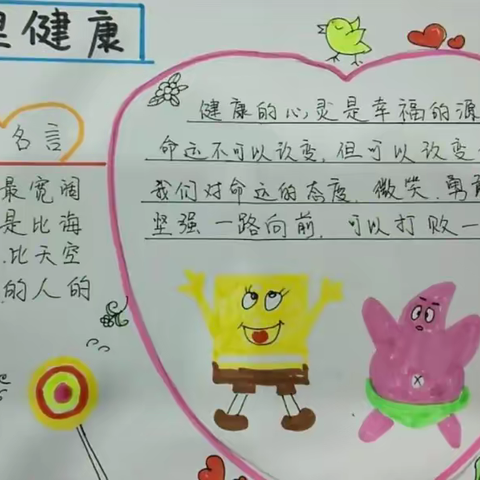 健康
名言
最宽阔
是比海
比天空
的人的
健康的心灵是幸福的源
命运不可以改变,但可以改变
我们对命运的态度.微笑.勇敢
坚强一路向前.可以打败一